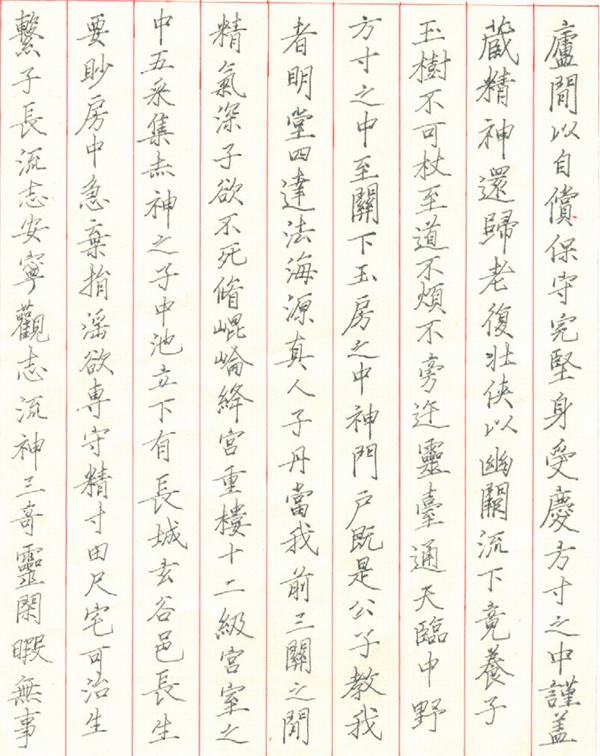 廬間以自償保守完堅身受慶方寸之中謹蓋
蔵精神還歸老復壯侠以幽關流下竟養子
玉樹不可杖至道不煩不旁迕靈臺通天臨中野
方寸之中至關下玉房之中神門户既是公子教我
者明堂四達法海源真人子丹當我前三關之間
精氣深子欲不死脩崐崘絳宮重樓十二級宮室之
中五采集赤神之子中池立下有長城玄谷邑長生
要眇房中急棄捐滛欲専守精寸田尺宅可治生
繫子長流志安寧觀志流神三奇靈閑暇無事